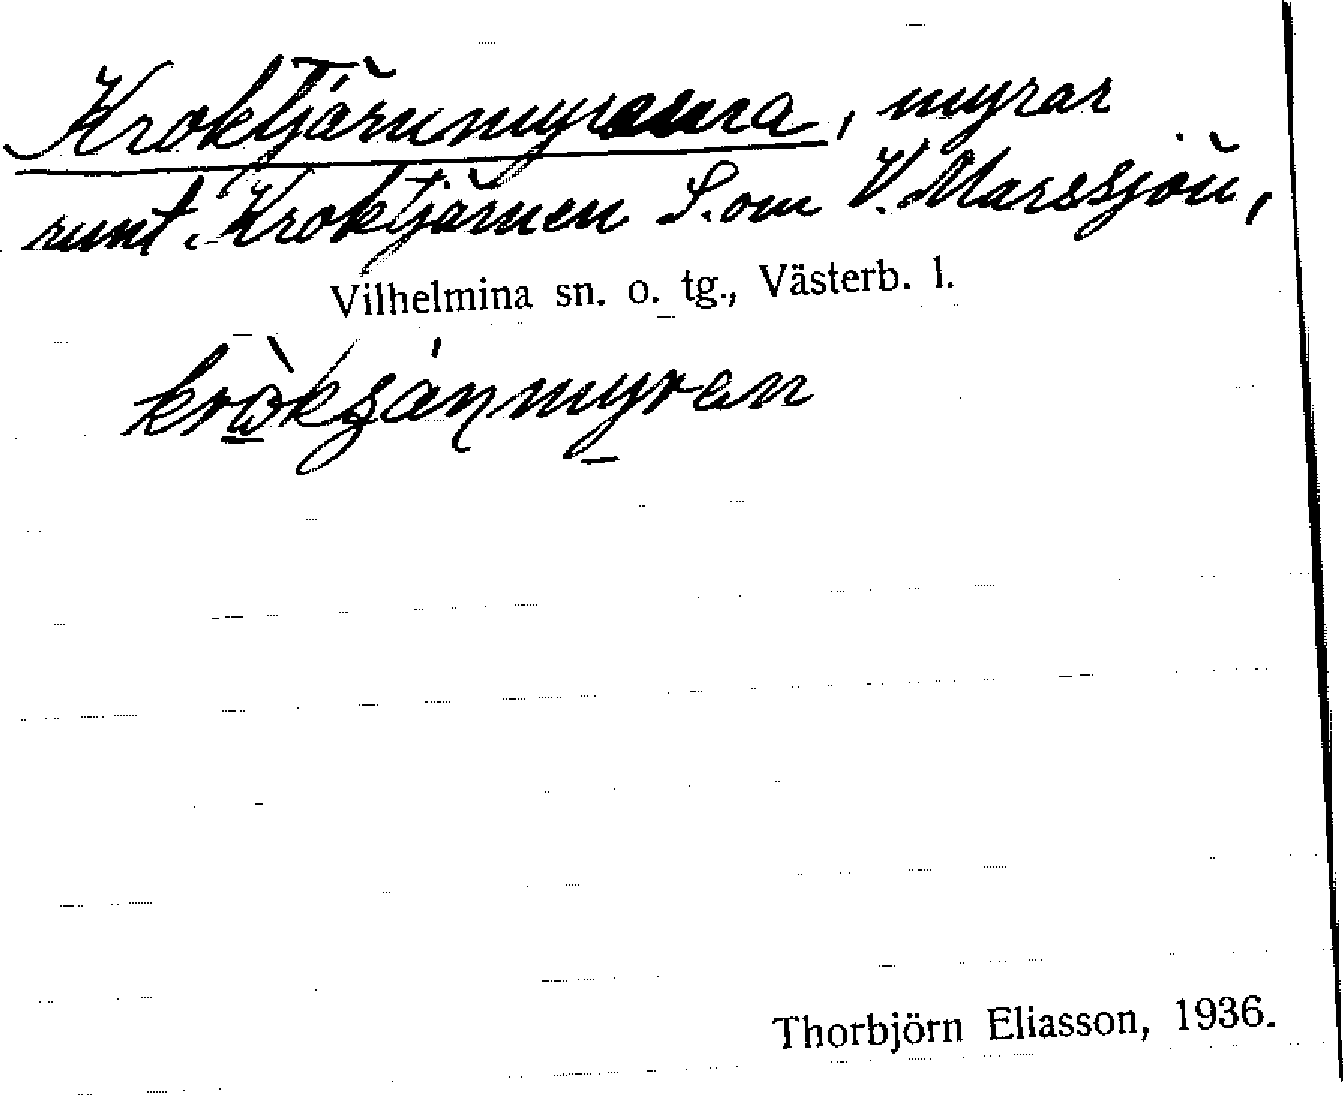 Kroktjärnmyrarna, myrar
runt Kroktjärnen S. om V. Marssjön,
Vilhelmina sn. o. tg., Västerb. l.
Thorbjörn Eliasson, 1936.